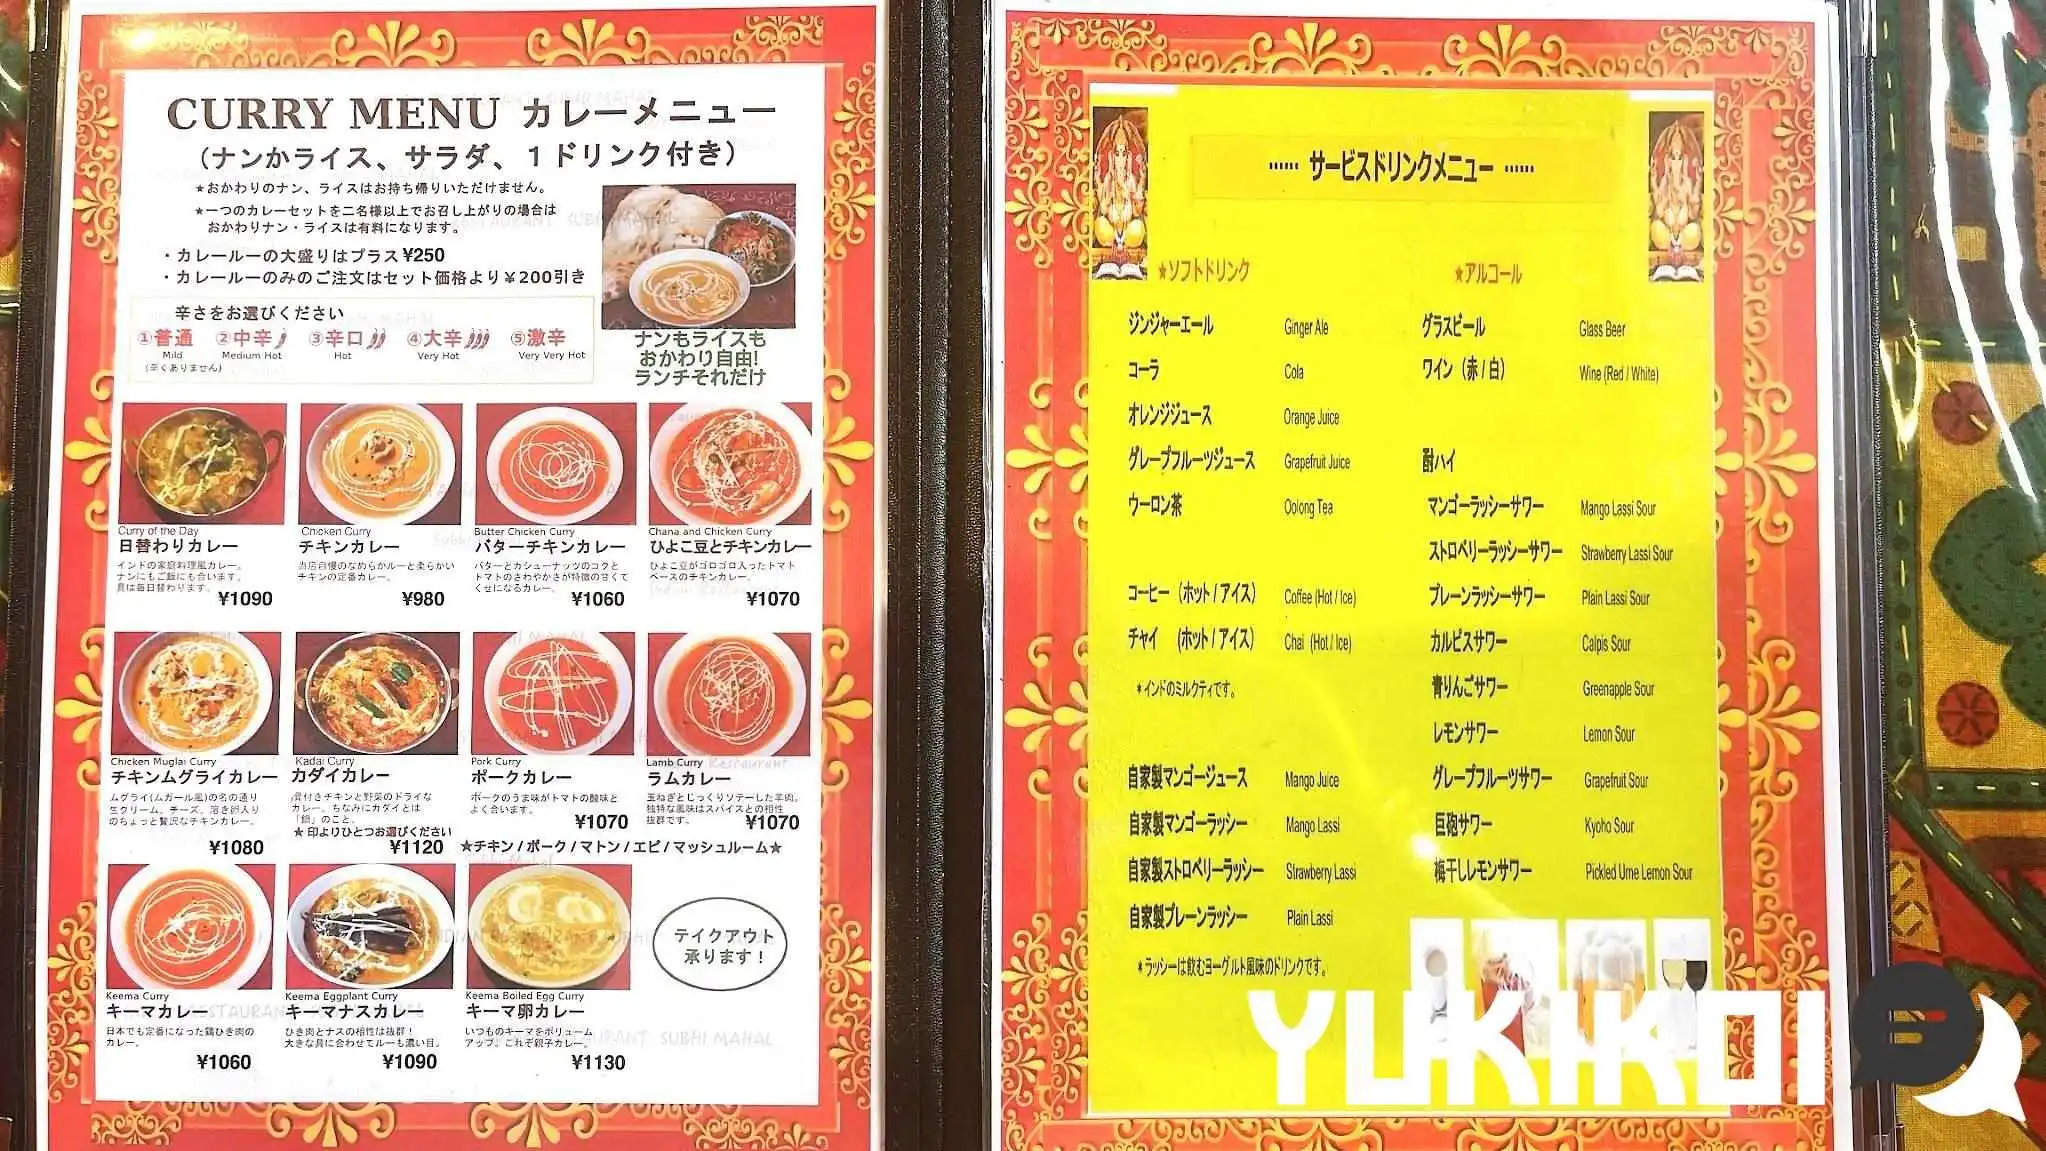 CURRY MENU カレーメニュー
(ナンかライス、サラダ、1ドリンク付き)
★おかわりのナン、ライスはお持ち帰りいただけません。
★一つのカレーセットを二名様以上でお召し上がりの場合は
おかわりナン・ライスは有料になります。
・カレールーの大盛りはプラス ¥250
・カレールーのみのご注文はセット価格より¥200引き
辛さをお選びください
①普通 ②中辛 ③辛口 ④大辛 ⑤激辛
Mild Medium Hot Hot Very Hot Very Very Hot
(辛くありません)
ナンもライスも
おかわり自由!
ランチそれだけ
Curry of the Day
日替わりカレー
インドの家庭料理風カレー。
ナンにもご飯にも合います。
具は毎日替わります。
¥1090
Chicken Curry
チキンカレー
当店自慢のなめらかルーと柔らかい
チキンの定番カレー。
¥980
Butter Chicken Curry
バターチキンカレー
バターとカシューナッツのコクと
トマトのさわやかさが特徴の甘くて
くせになるカレー。
¥1060
Chana and Chicken Curry
ひよこ豆とチキンカレー
ひよこ豆がゴロゴロ入ったトマト
ベースのチキンカレー。
¥1070
Chicken Muglai Curry
チキンムグライカレー
ムグライ(ムガール風)の名の通り
生クリーム、チーズ、溶き卵入り
のちょっと贅沢なチキンカレー。
¥1080
Kadai Curry
カダイカレー
骨付きチキンと野菜のドライな
カレー。ちなみにカダイとは
「鍋」のこと。
★印よりひとつお選びください
¥1120
Pork Curry
ポークカレー
ポークのうま味がトマトの酸味と
よく合います。
¥1070
Lamb Curry
ラムカレー
玉ねぎとじっくりソテーした羊肉。
独特な風味はスパイスとの相性
抜群です。
¥1070
★チキン/ポーク/マトン/エビ/マッシュルーム★
Keema Curry
キーマカレー
日本でも定番になった鶏ひき肉の
カレー。
¥1060
Keema Eggplant Curry
キーマナスカレー
ひき肉とナスの相性は抜群!
大きな具に合わせてルーも濃い目。
¥1090
Keema Boiled Egg Curry
キーマ卵カレー
いつものキーマをボリューム
アップ。これぞ親子カレー。
¥1130
テイクアウト
承ります!
······ サービスドリンクメニュー ······
★ソフトドリンク
ジンジャーエール Ginger Ale
コーラ Cola
オレンジジュース Orange Juice
グレープフルーツジュース Grapefruit Juice
ウーロン茶 Oolong Tea
コーヒー (ホット/アイス) Coffee (Hot / Ice)
チャイ (ホット/アイス) Chai (Hot / Ice)
*インドのミルクティです。
自家製マンゴージュース Mango Juice
自家製マンゴーラッシー Mango Lassi
自家製ストロベリーラッシー Strawberry Lassi
自家製プレーンラッシー Plain Lassi
*ラッシーは飲むヨーグルト風味のドリンクです。
★アルコール
グラスビール Glass Beer
ワイン (赤/白) Wine (Red / White)
酎ハイ
マンゴーラッシーサワー Mango Lassi Sour
ストロベリーラッシーサワー Strawberry Lassi Sour
プレーンラッシーサワー Plain Lassi Sour
カルピスサワー Calpis Sour
青りんごサワー Greenapple Sour
レモンサワー Lemon Sour
グレープフルーツサワー Grapefruit Sour
巨砲サワー Kyoho Sour
梅干しレモンサワー Pickled Ume Lemon Sour
YUKIKOI